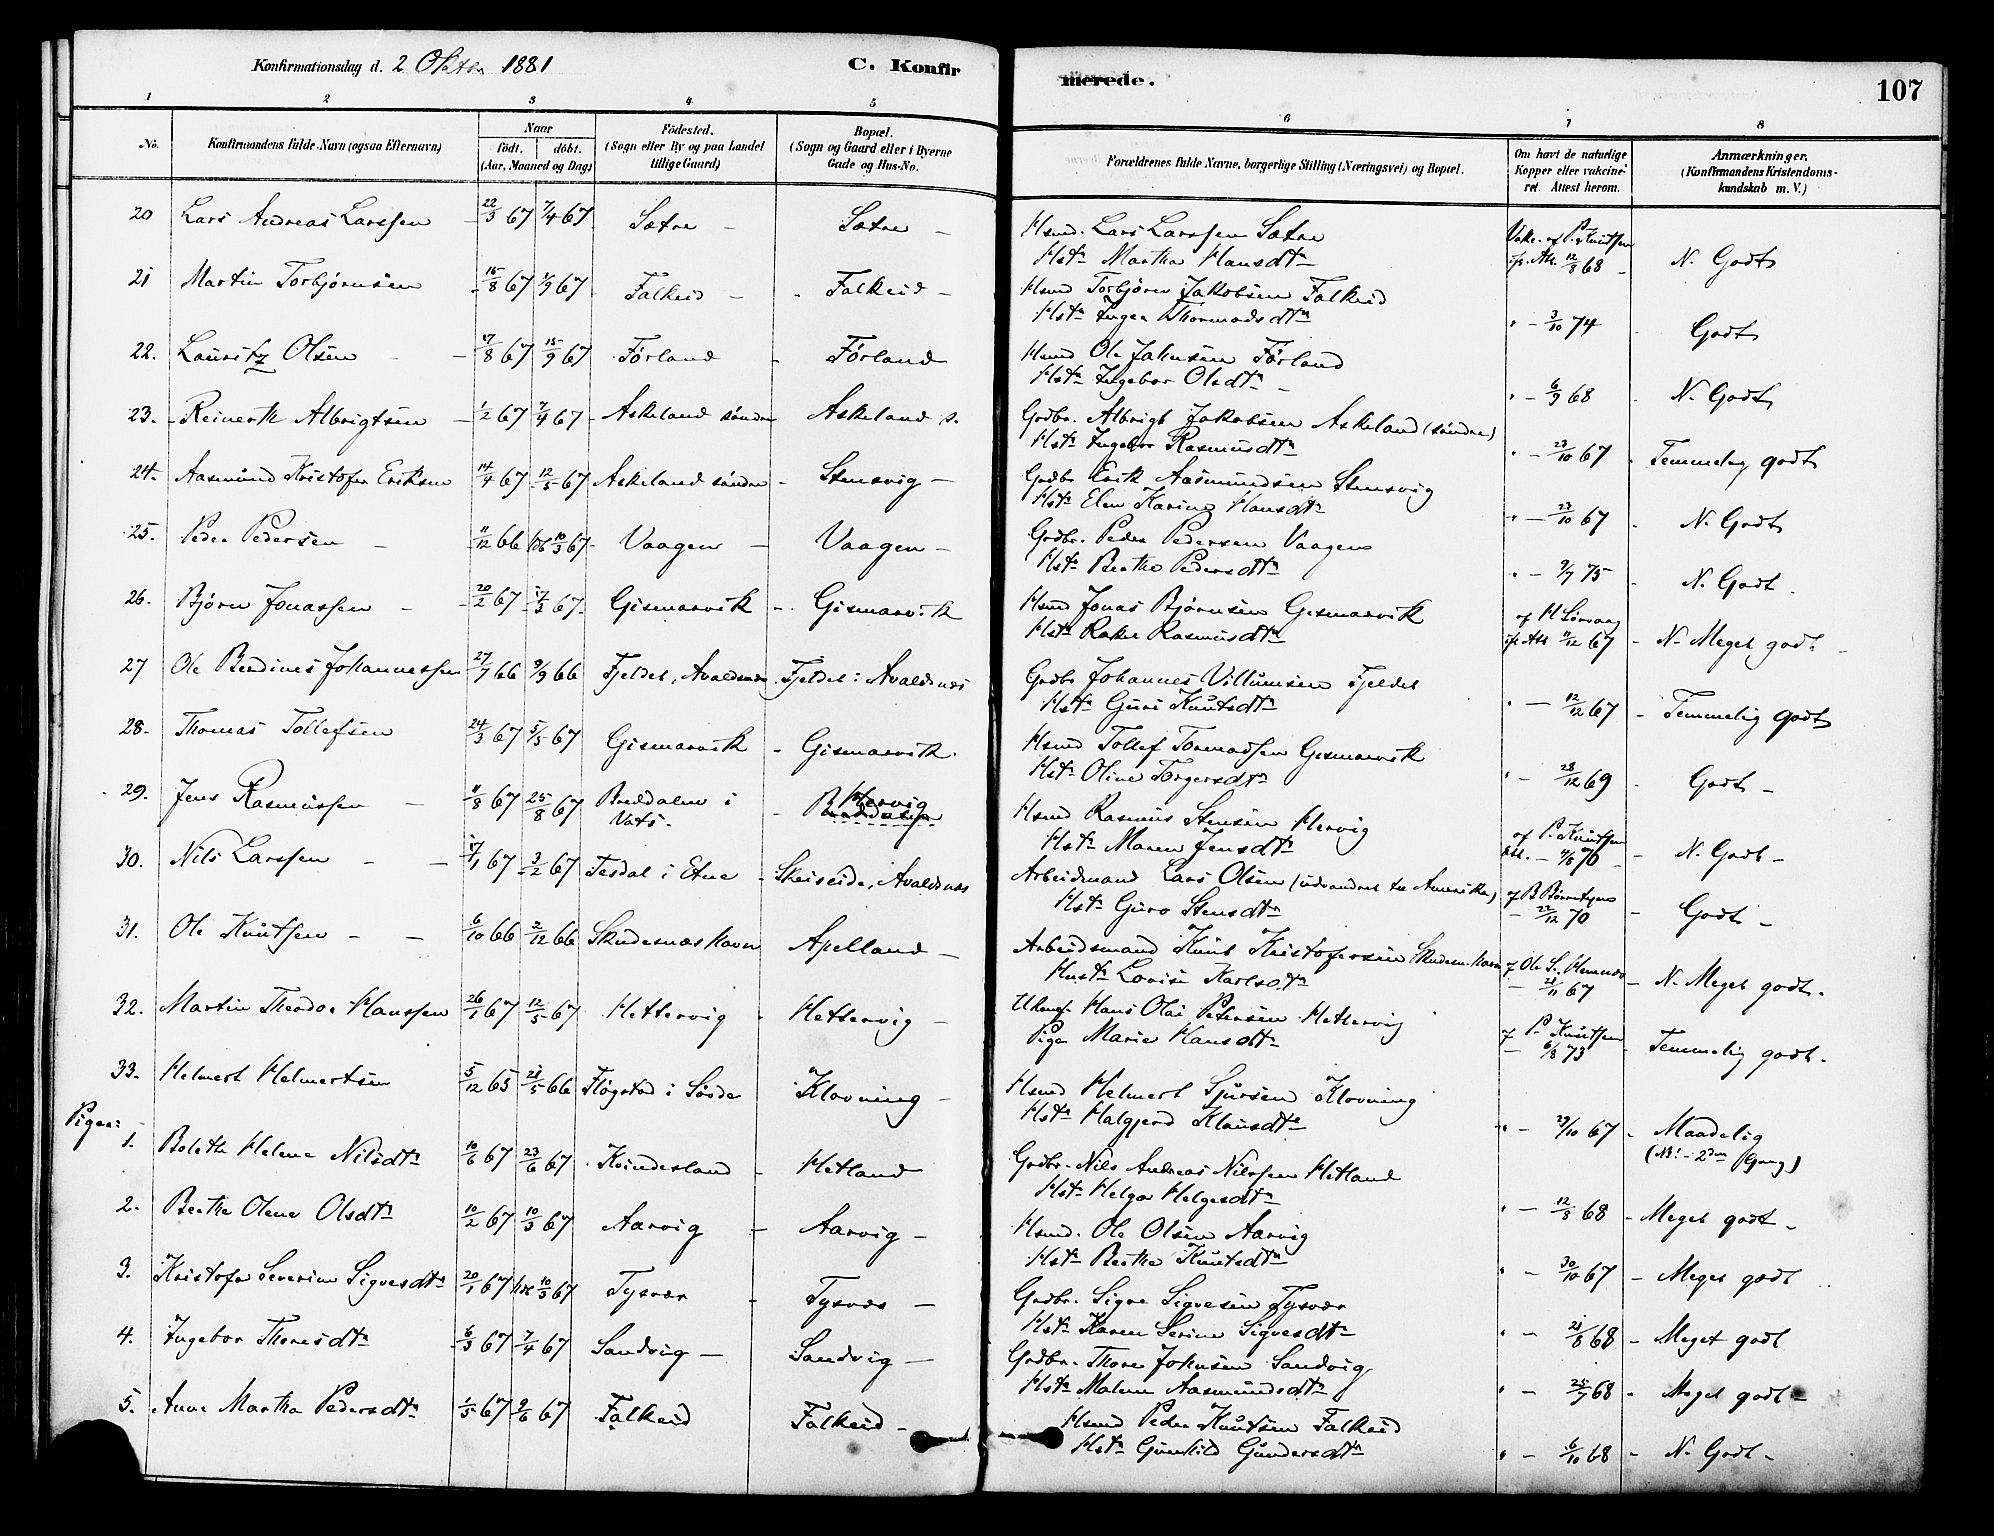 Konfirmationsdag d. 2 Oktbr 1881
C. Konfirmerede.
107
1 2 3 4 5 6 7 8
No.
Konfirmandens fulde Navn (ogsaa Efternavn)
Naar
födt. döbt.
(Aar, Maaned og Dag)
Födested.
(Sogn eller By og paa Landet tillige Gaard)
Bopæl.
(Sogn og Gaard eller i Byerne Gade og Hus-No.
Forældrenes fulde Navne, borgerlige Stilling (Næringsvei) og Bopæl.
Om havt de naturlige Kopper eller vakcineret. Attest herom.
Anmærkninger.
(Konfirmandens Kristendomskundskab m. V.)
20 Lars Andreas Larssen 22/3 67 7/4 67 Sætre - Sætre - Hsmd. Lars Larssen Sætre Vakc. af P. Knutsen
Hst. Martha Hansdtr ifl. Att. 12/8 68 - N. Godt
21 Martin Torbjørnsen 15/8 67 1/9 67 Falkeid - Falkeid - Hsmd Torbjörn Jakobsen Falkeid
Hstr Inger Thormodsdtr " - 3/10 74 Godt
22. Lauritz Olsen 17/8 67 15/9 67 Förland - Förland Hsmd Ole Johnsen Förland
Hstr Ingebor Olsdtr " - 6/9 68 N. Godt
23. Reinert Albrigtsen 1/2 67 7/4 67 Askeland söndre Askeland s. Grdbr. Albrigt Jakobsen Askeland (söndre)
Hstr Ingebor Rasmusdtr " - 23/10 67 Temmelig godt
24. Aasmund Kristofer Eriksen 14/4 67 12/5 67 Askeland söndre - Stensvig - Grdbr Erik Aasmundsen Stensvig
Hstr Elen Karine Hansdtr " - 23/10 67 N. Godt
25. Peder Pedersen 11/12 66 10/3 67 Vaagen - Vaagen - Grdbr. Peder Pedersen Vaagen
Hstr Berthe Pedersdtr " - 9/7 75 N. Godt.
26. Björn Jonassen 20/2 67 17/3 67 Gismarvik - Gismarvik Hsmd Jonas Björnsen Gismarvik af H Sörvaag
Hstr Rakel Rasmusdtr ifl. Att 11/12 67 - N. Meget godt
27 Ole Berdines Johannessen 27/7 66 9/9 66 Fjeldet, Avaldsnæs Fjeldet i Avaldsnæs Grdbr Johannes Villumsen Fjeldet
Hstr Guri Knutsdtr " - 12/12 67 - Temmelig godt
28. Thomas Tollefsen 24/3 67 5/5 67 Gismarvik - Gismarvik. Hsmd Tollef Tormodsen Gismarvik
Hstr Oline Torgersdtr " - 28/12 69 Godt -
29. Jens Rasmussen 11/8 67 25/8 67 Breddalen i Vats. Hervig Hsmd Rasmus Stensen Hervig af P. Knutsen
Hstr Maren Jensdtr Att. - 4/8 70 - N. Godt -
30. Nils Larssen 17/1 67 3/2 67 Tesdal i Etne - Skeiseide, Avaldsnæs Arbeidsmand Lars Olsen (udvandret til Amerika)
Hstr Guro Stensdtr - 22/12 70 - Godt -
31. Ole Knutsen 6/10 66 2/12 66 Skudesnæshavn Apelland - Arbeidsmand Knut Kristofersen Skudesn. havn
Hustr Lovise Karlsdtr - 21/11 67 - N. Meget godt.
32. Martin Theodor Hanssen 26/1 67 12/5 67 Hettervig Hettervig - Ukmf. Hans Olai Petersen Hettervig af P. Knutsen
Pige Marie Hansdtr - 6/8 73 - Temmelig godt.
33. Helmert Helmertsen 5/12 65 21/5 66 Flögstad i Sövde Klovning - Hsmd Helmert Sjursen Klovning
Hstr Halgjerd Klausdtr " - 23/10 67 - Maadelig
(NB! - 2den Gang)
Piger:
1. Bolethe Helene Nilsdtr 10/6 67 23/6 67 Kvindesland - Hetland Grdbr. Nils Andreas Nilssen Hetland
Hstr Helga Helgesdtr " - 12/8 68 - Meget godt -
2. Berthe Olene Olsdtr 10/2 67 10/3 67 Aarvig - Aarvig - Hsmd. Ole Olsen Aarvig
Hstr Berthe Knutsdtr " - 30/10 67 - Meget godt
3. Kristofa Severine Sigvesdtr 20/1 67 10/3 67 Tysvær - Tysvær - Grdbr. Sigve Sigvesen Tysvær
Hstr Karen Serine Sigvesdtr " - 21/8 68 - Meget godt
4. Ingebor Thoresdtr 6/3 67 7/4 67 Sandvig - Sandvig - Grdbr. Thore Johnsen Sandvig
Hstr Malene Aasmundsdtr " - 25/7 68 - Meget godt -
5. Anne Martha Pedersdtr 1/5 67 9/6 67 Falkeid Falkeid - Hsmd Peder Knutsen Falkeid
Hstr Gunhild Gundersdtr " - 6/10 68 - N. Godt -